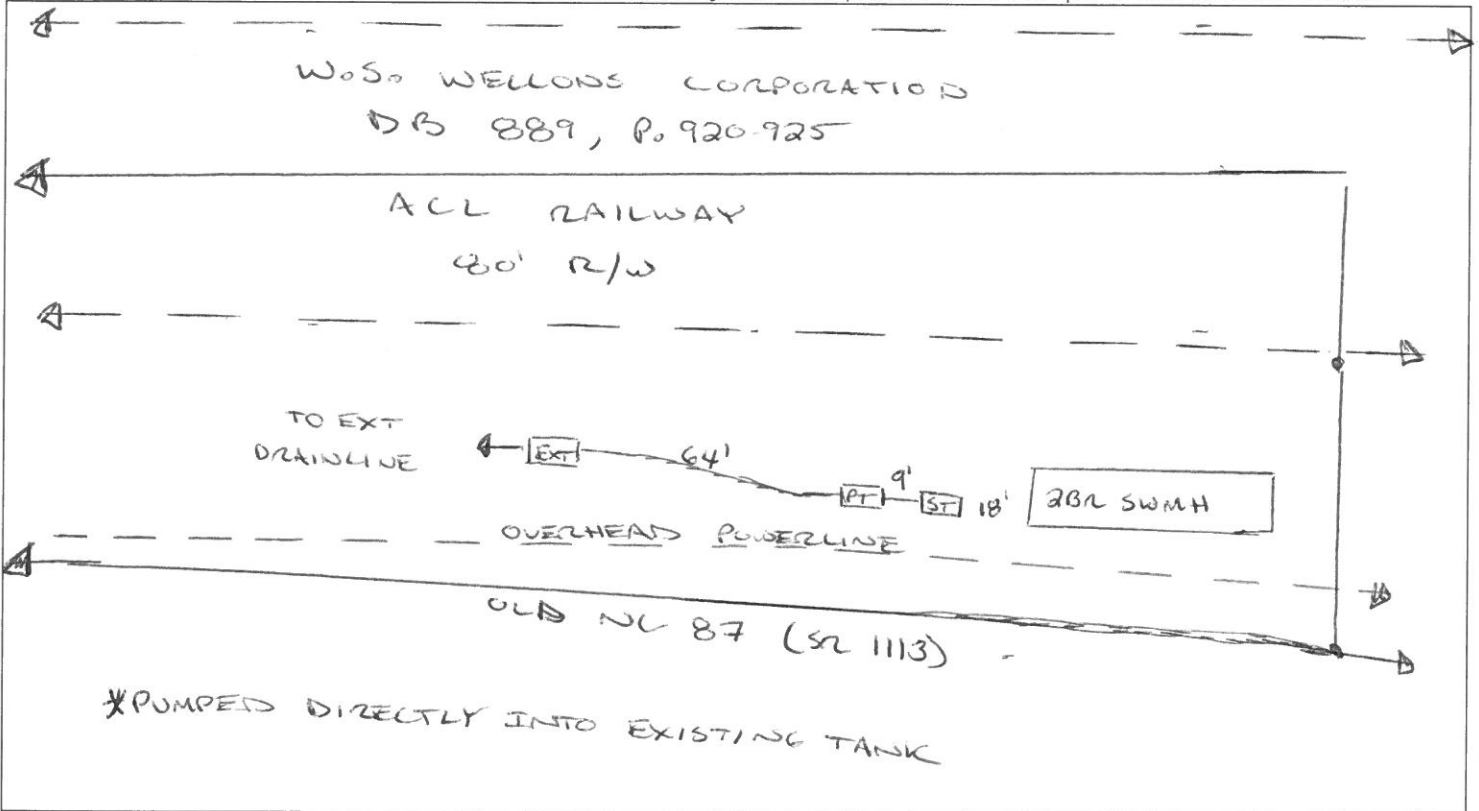 W.S. WELLONS CORPORATION
DB 889, P. 920-925
ACL RAILWAY
80' R/W
TO EXT
DRAINLINE
EXT
64'
PT
9'
ST
18'
2BR SWMH
OVERHEAD POWERLINE
OLD NC 87 (SR 1113)
*PUMPED DIRECTLY INTO EXISTING TANK